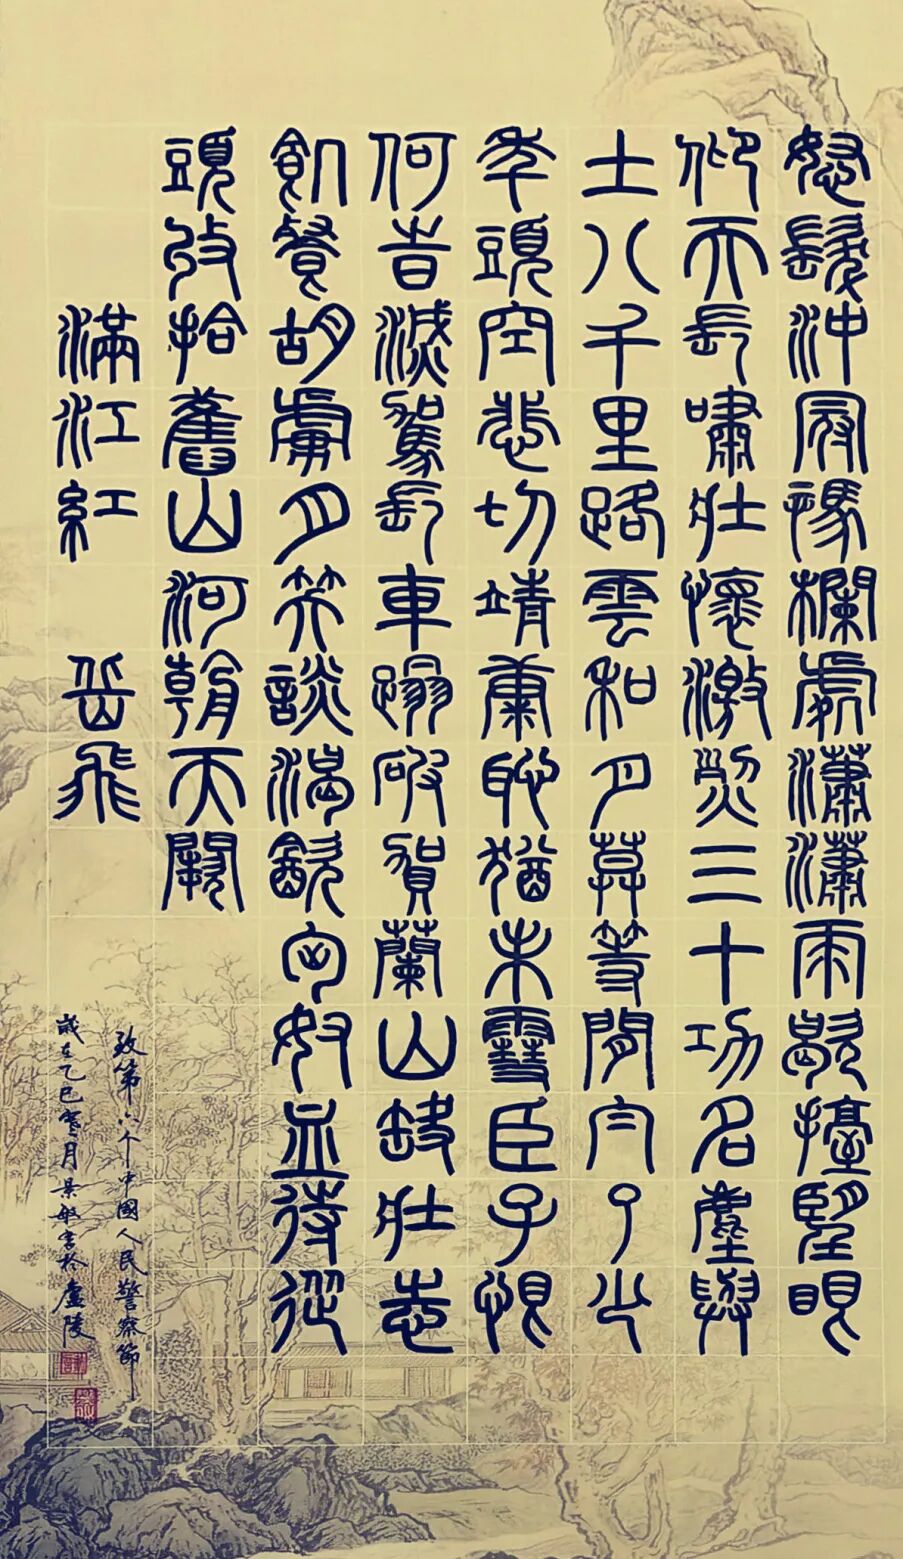 怒髮沖冠憑欄處瀟瀟雨歇擡望眼
仰天長嘯壯懷激烈三十功名塵與
土八千里路雲和月莫等閒白了少
年頭空悲切靖康恥猶未雪臣子恨
何時滅駕長車踏破賀蘭山缺壯志
飢餐胡虜肉笑談渴飲匈奴血待從
頭收拾舊山河朝天闕
滿江紅 岳飛
致第六个中國人民警察節
歲在乙巳寒月景敏書於廬陵